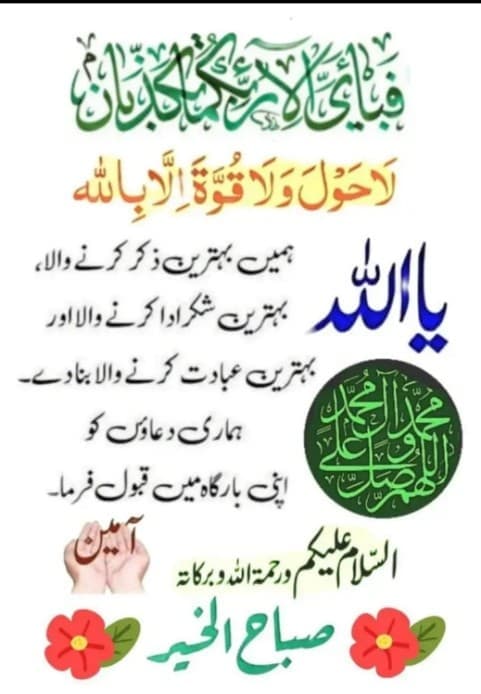 فَبِاَیِّ اٰلَآءِ رَبِّکُمَا تُکَذِّبَانِ
لَا حَوْلَ وَلَا قُوَّةَ اِلَّا بِاللّٰه
یا اللّٰہ
ہمیں بہترین ذکر کرنے والا،
بہترین شکر ادا کرنے والا اور
بہترین عبادت کرنے والا بنا دے۔
ہماری دعاؤں کو
اپنی بارگاہ میں قبول فرما۔
اللهم صل على محمد وآل محمد
آمین
السّلام علیکم ورحمة الله وبرکاته
صباح الخير